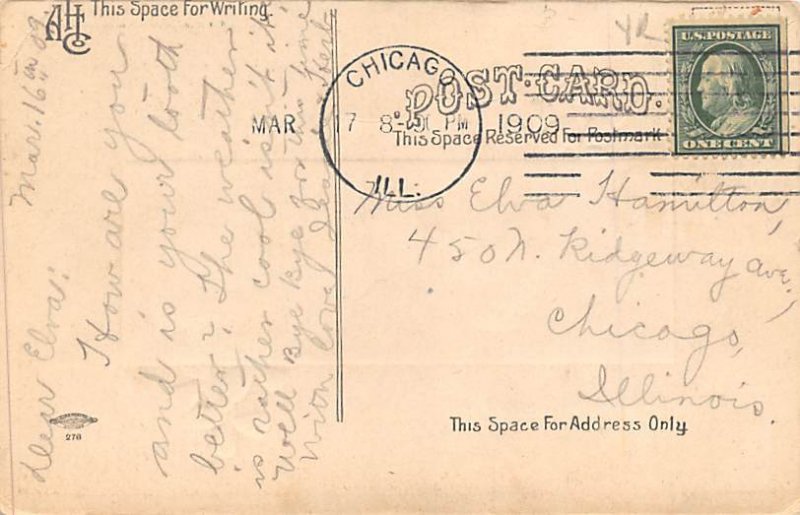 AHC
This Space For Writing
Mar. 16th 09
Dear Elva:
How are you
and is your tooth
better? The weather
is rather cool isn't it
Well Bye Bye for this time
With love
CHICAGO
ILL.
MAR 17 8- PM 1909
POST-CARD.
This Space Reserved For Postmark
U.S. POSTAGE
ONE CENT
Miss Elva Hamilton,
450 N. Ridgeway ave,
Chicago,
Illinois.
This Space For Address Only
278